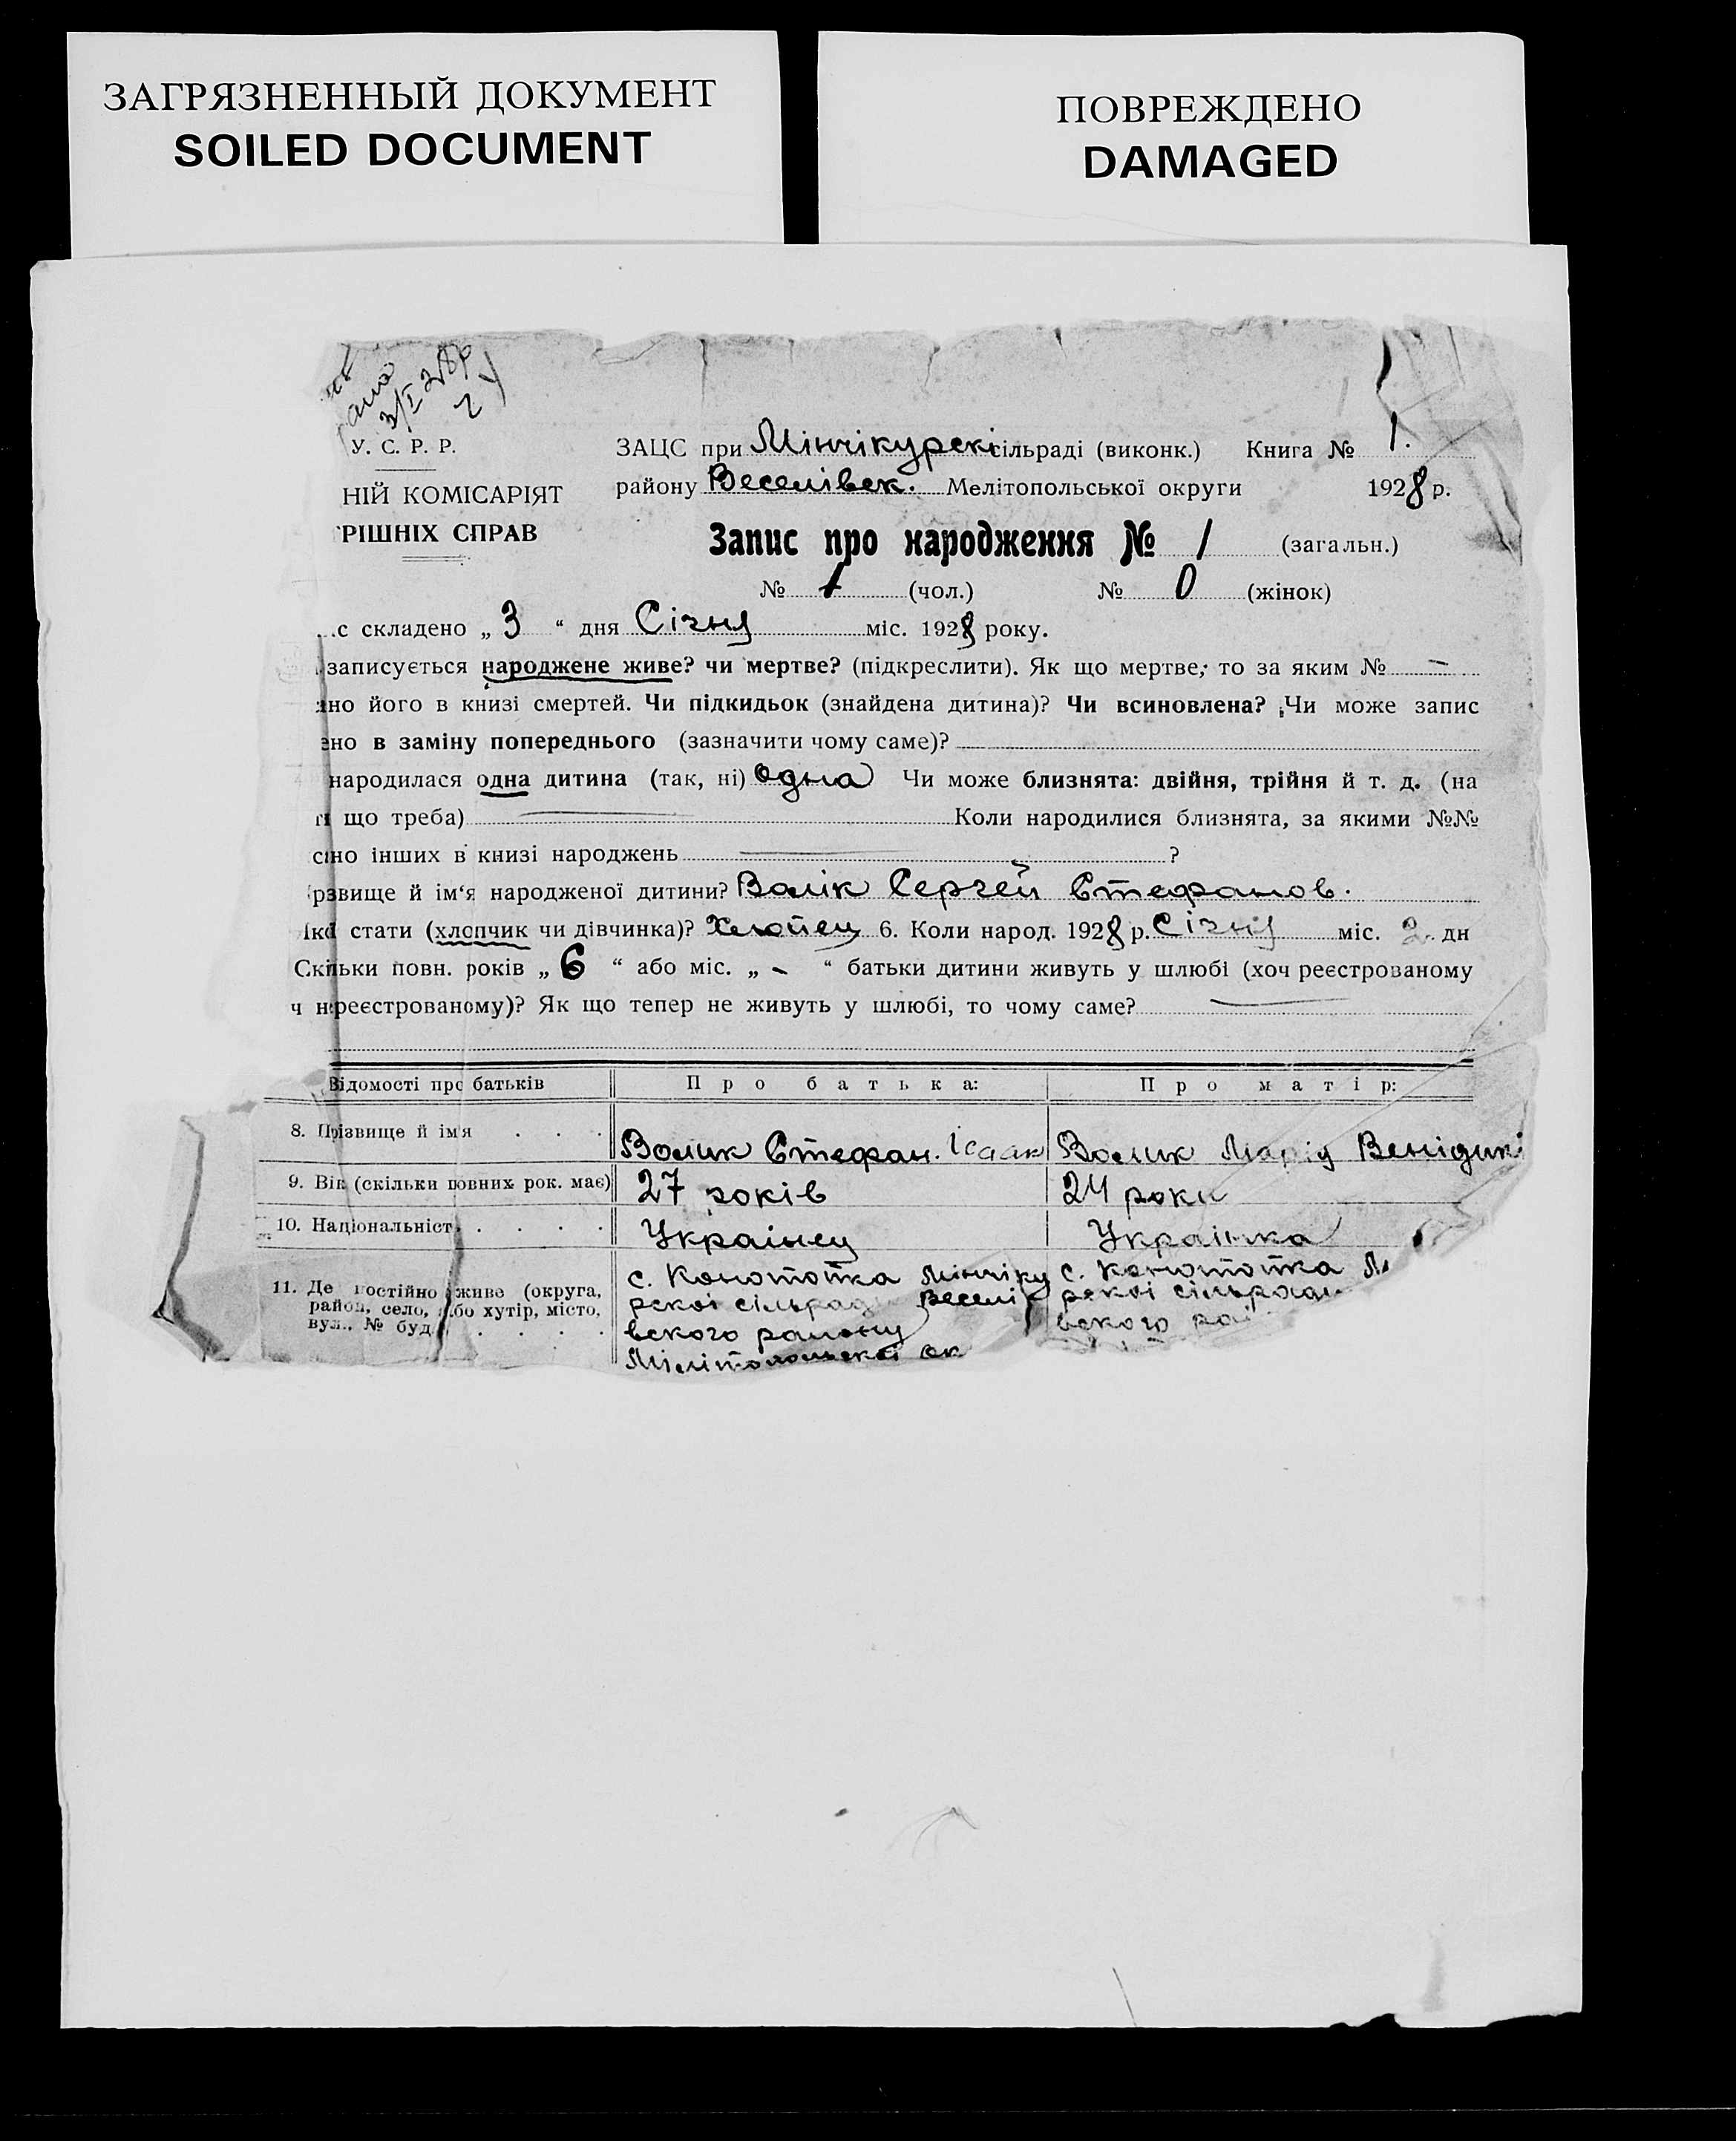 ЗАГРЯЗНЕННЫЙ ДОКУМЕНТ
SOILED DOCUMENT
ПОВРЕЖДЕНО
DAMAGED
3/I 28р
У. С. Р. Р.
НІЙ КОМІСАРІЯТ
РІШНІХ СПРАВ
ЗАЦС при Мінчікурскі сільраді (виконк.) Книга № 1.
району Веселівск. Мелітопольської округи 1928 р.
Запис про народження № 1 (загальн.)
№ 1 (чол.) № 0 (жінок)
с складено „ 3 “ дня Січня міс. 1928 року.
записується народжене живе? чи мертве? (підкреслити). Як що мертве, то за яким № —
но його в книзі смертей. Чи підкидьок (знайдена дитина)? Чи всиновлена? Чи може запис
ено в заміну попереднього (зазначити чому саме)?
народилася одна дитина (так, ні) одна Чи може близнята: двійня, трійня й т. д. (на
що треба) — Коли народилися близнята, за якими №№
сано інших в книзі народжень — ?
різвище й ім‘я народженої дитини? Волік Сергей Стефанов.
Якої стати (хлопчик чи дівчинка)? Хлопец 6. Коли народ. 1928 р. Січня міс. 2 дн
Скільки повн. років „ 6 “ або міс. „ - “ батьки дитини живуть у шлюбі (хоч реєстрованому
ч нереєстрованому)? Як що тепер не живуть у шлюбі, то чому саме? —
Відомості про батьків Про батька: Про матір:
8. Прізвище й ім‘я . . . Волик Стефан. Ісаак Волик Марія Венідикі
9. Вік (скільки повних рок. має) 27 років 24 роки
10. Національність . . . . Українец Українка
11. Де постійно живе (округа, район, село, або хутір, місто, вул., № буд. . . . .
с. Конотопка Мінчіку
рскоі сільради Веселі
вского району
Мілітопольскоі ок
с. Конотопка М
рскоі сільради
вского рай